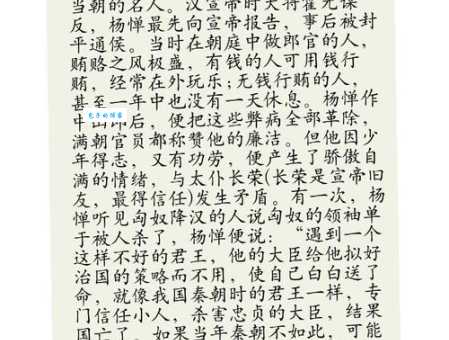 当朝的名人。汉宣帝时大将霍光谋
反，杨惮最先向宣帝报告，事后被封
平通侯。当时在朝庭中做郎官的人，
贿赂之风极盛，有钱的人可用钱行
贿，经常在外玩乐；无钱行贿的人，
甚至一年中也没有一天休息。杨惮作
中山郎后，便把这些弊病全部革除，
满朝官员都称赞他的廉洁。但他因少
年得志，又有功劳，便产生了骄傲自
满的情绪，与太仆长荣(长荣是宣帝旧
友，最得信任)发生矛盾。有一次，杨
惮听见匈奴降汉的人说匈奴的领袖单
于被人杀了，杨惮便说：“遇到一个
这样不好的君王，他的大臣给他拟好
治国的策略而不用，使自己白白送了
命，就像我国秦朝时的君王一样，专
门信任小人，杀害忠贞的大臣，结果
国亡了。如果当年秦朝不如此，可能